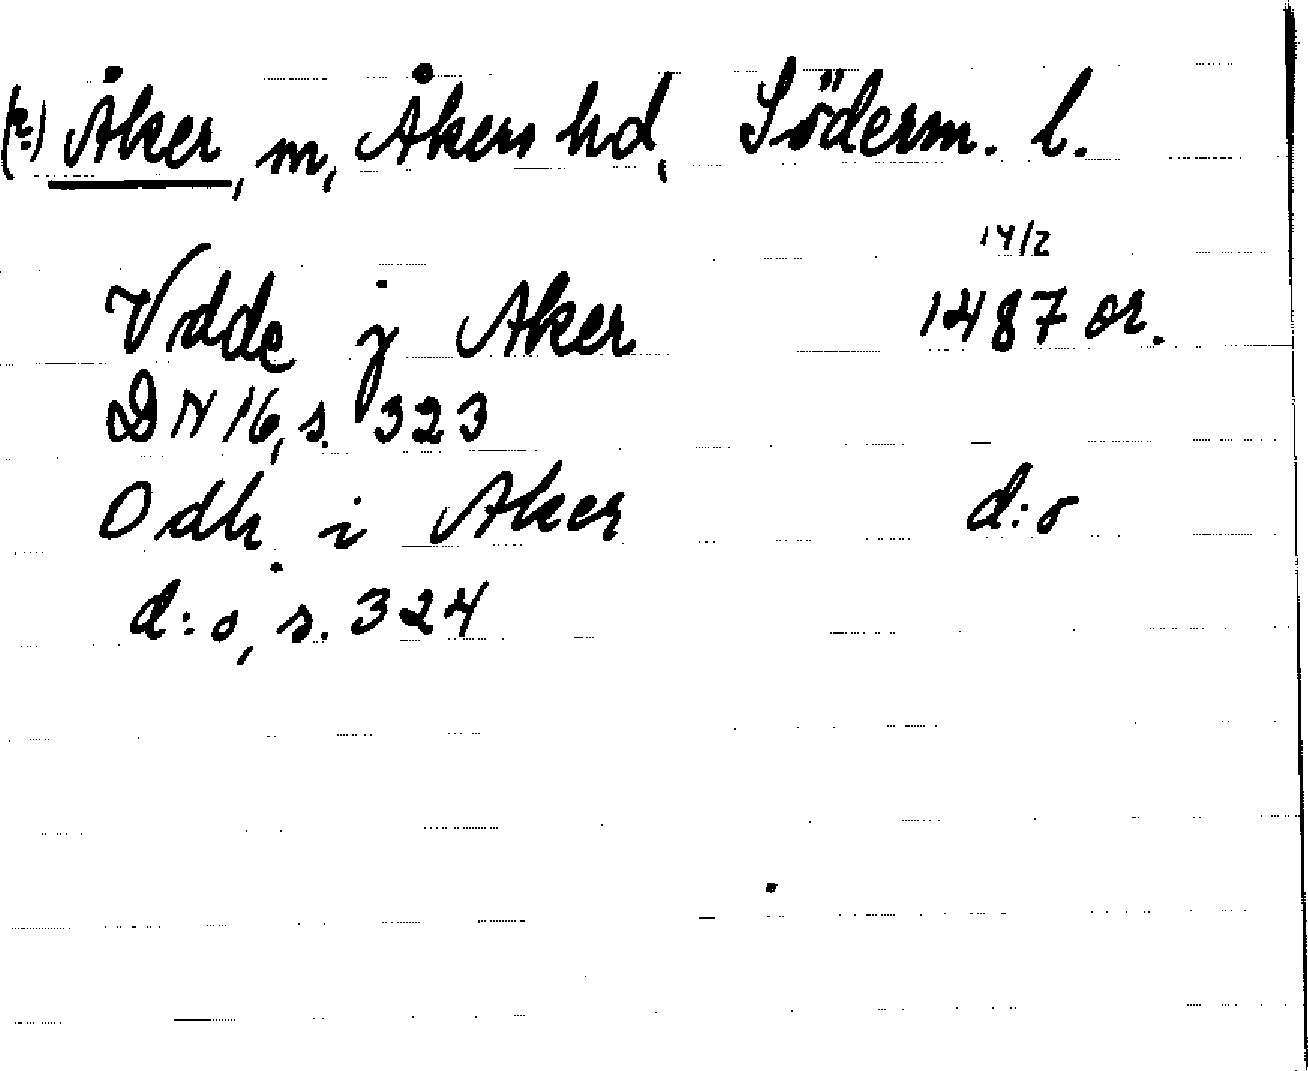 (?:) Åker, m, Åkers hd, Söderm. l.
14/2
Vdde j Aker 1487 or.
DN 16, s. 323
Odh i Aker d:o
d:o, s. 324